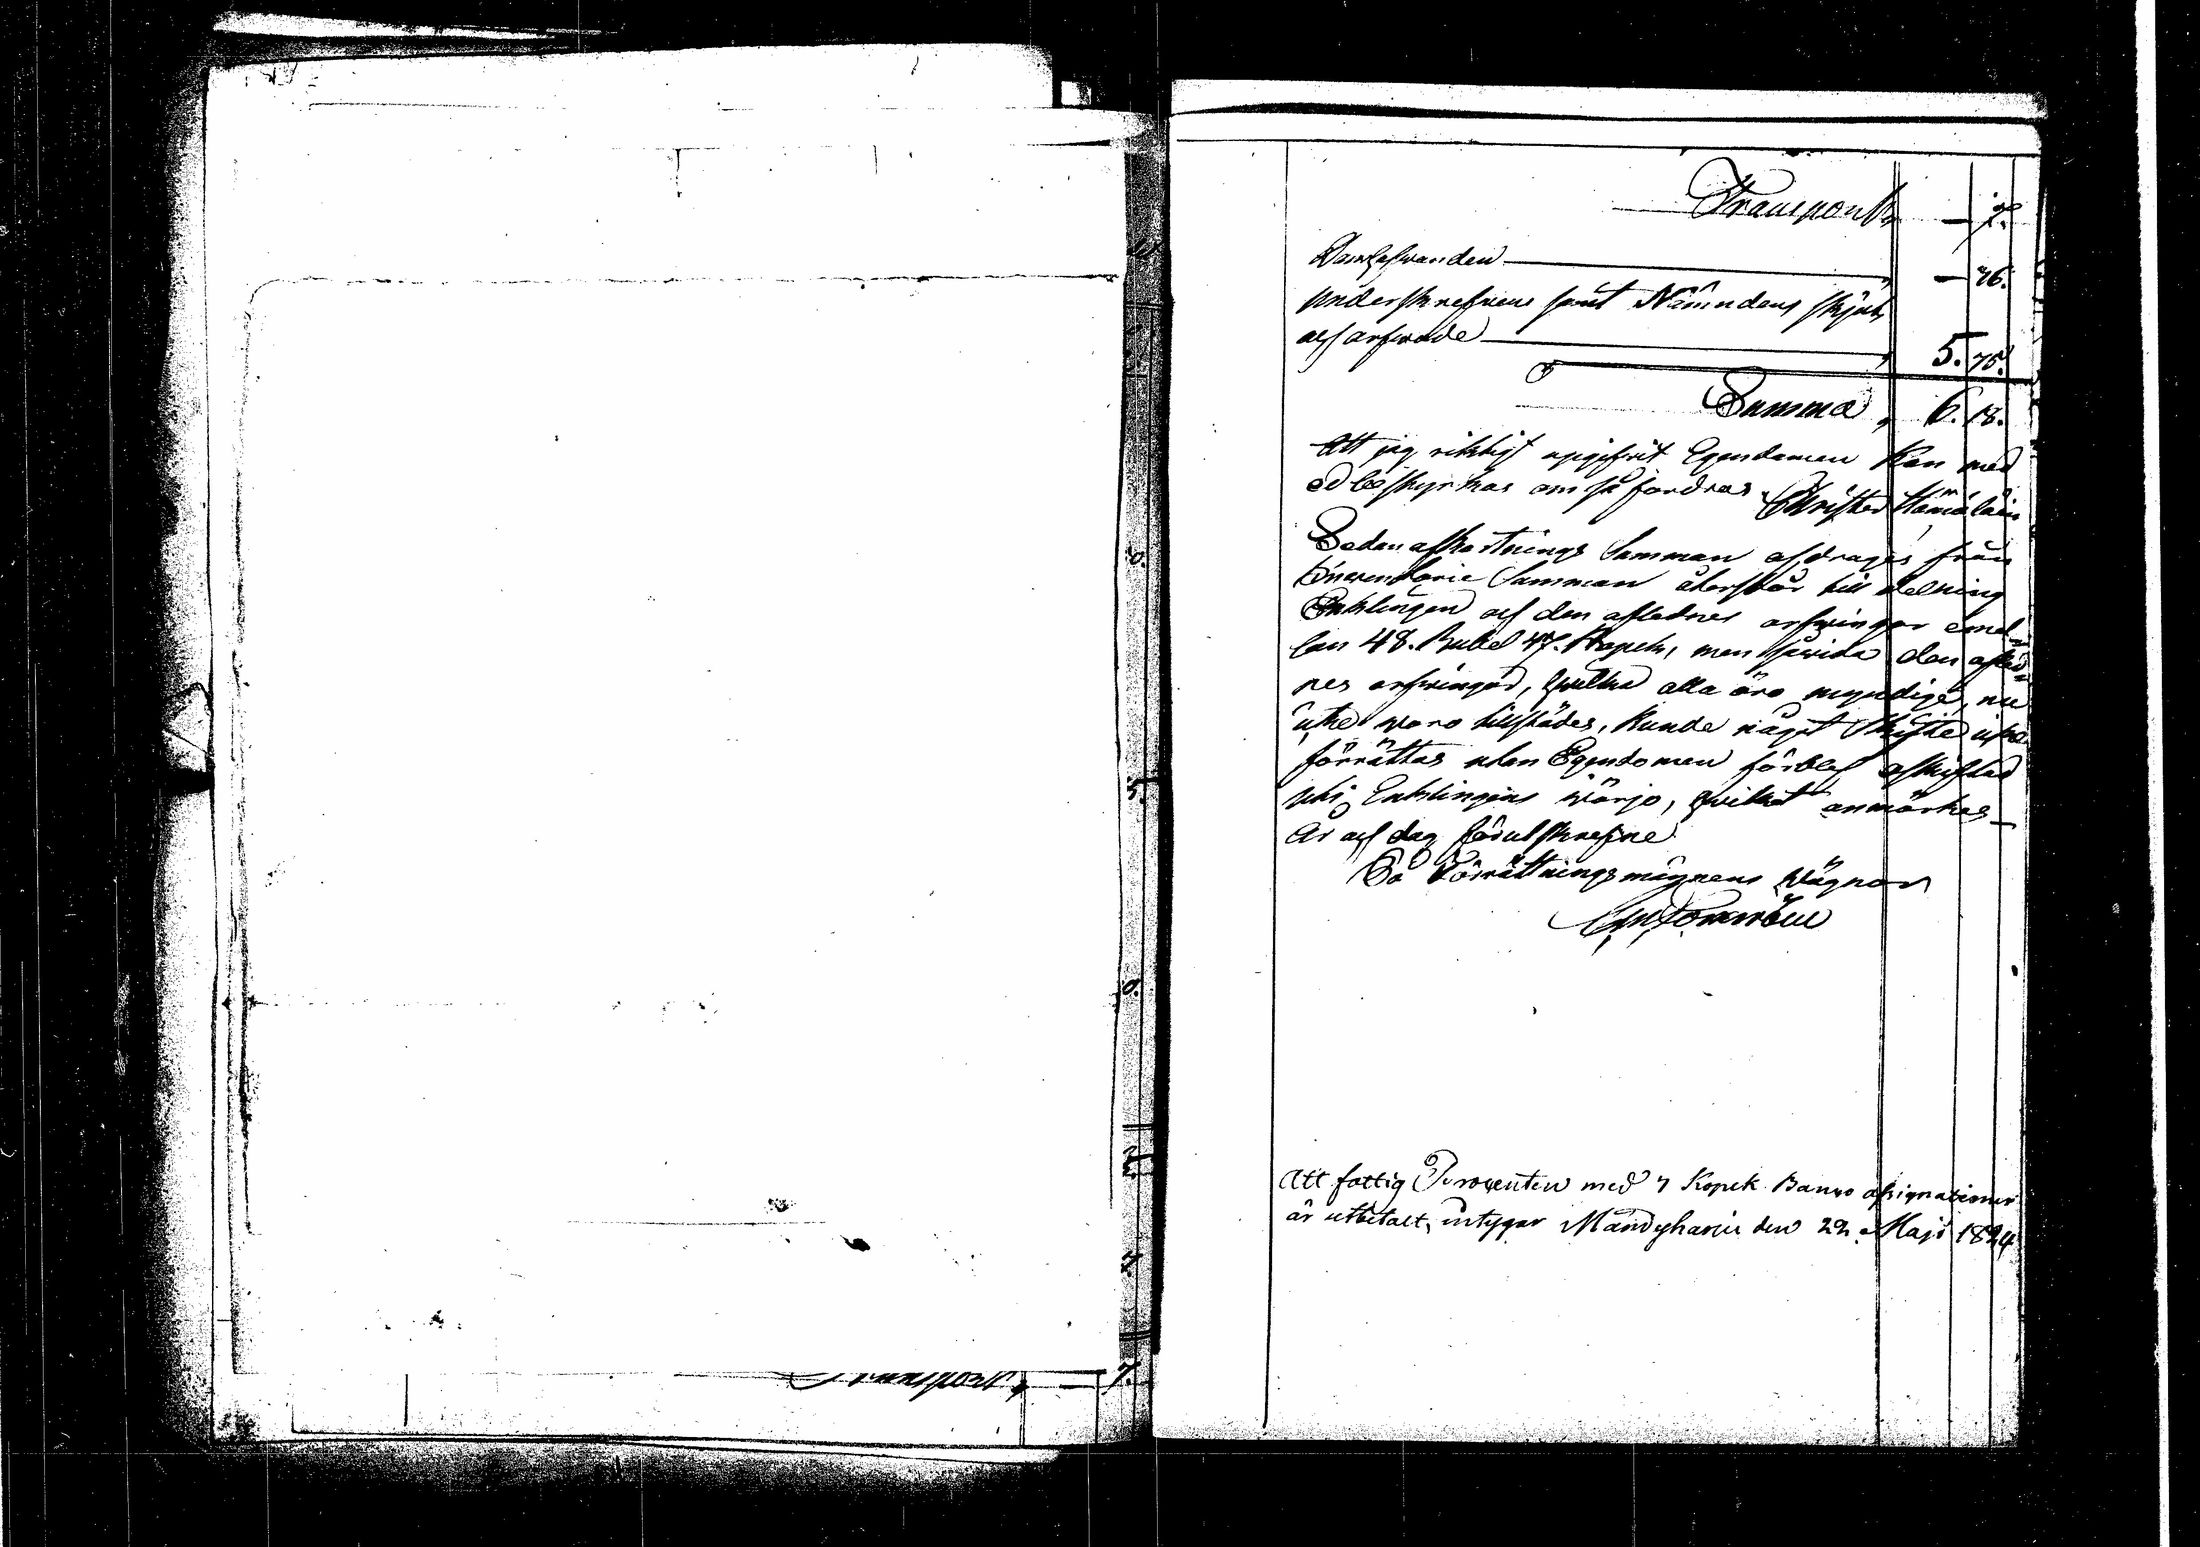 Transport — 7.
Transport — 7.
— 26.
underskrefvens samt Nämndens skjuts
och arfvode 5. 75.
Summa 6. 18.
Att jag riktigt uppgifvit Egendomen kan med
ed bestyrkas om så fordras. Christer Hämäläin
Sedan afkortnings Summan afdrages från
Inventarie Summan återstår till delning
Enklingen och den aflednes arfvingar emel-
lan 48. Rubel 47. Kopek, men såvida den afled-
nes arfvingar, hvilka alla äro myndige, nu
icke voro tillstädes, kunde något skifte icke
förrättas utan Egendomen förblef oskiftad
uti Enklingens värjo, hvilket anmärkes —
År och dag förutskrefne
På Förrättningsmännens vägnar
Att fattig Procenten med 7 Kopek Banco assignationer
är utbetalt, intygar Mandyharju den 22 Maji 1824